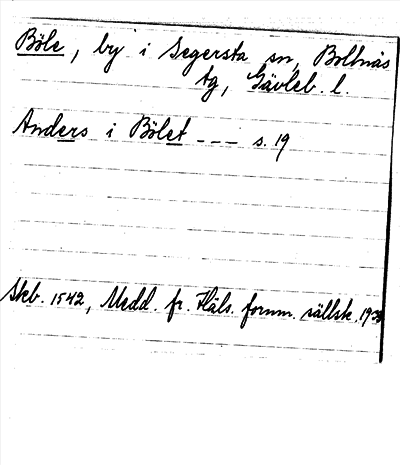 Böle, by i Segersta sn, Bollnäs
tg, Gävleb. l.
Anders i Bölet --- s. 19
Skb. 1542, Medd. fr. Häls. fornm. sällsk.